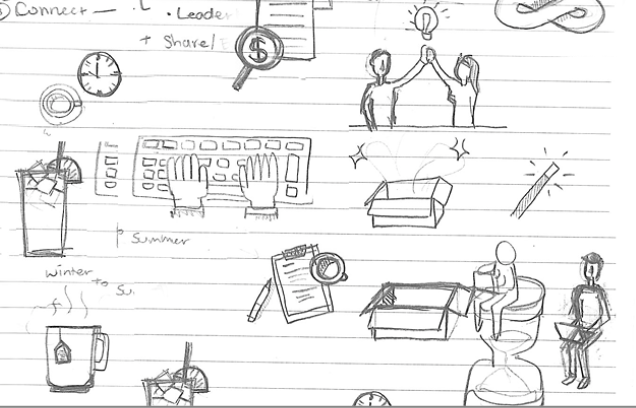 ① Connect —
• Leader
+ Share/
$
Summer
Winter
to Su